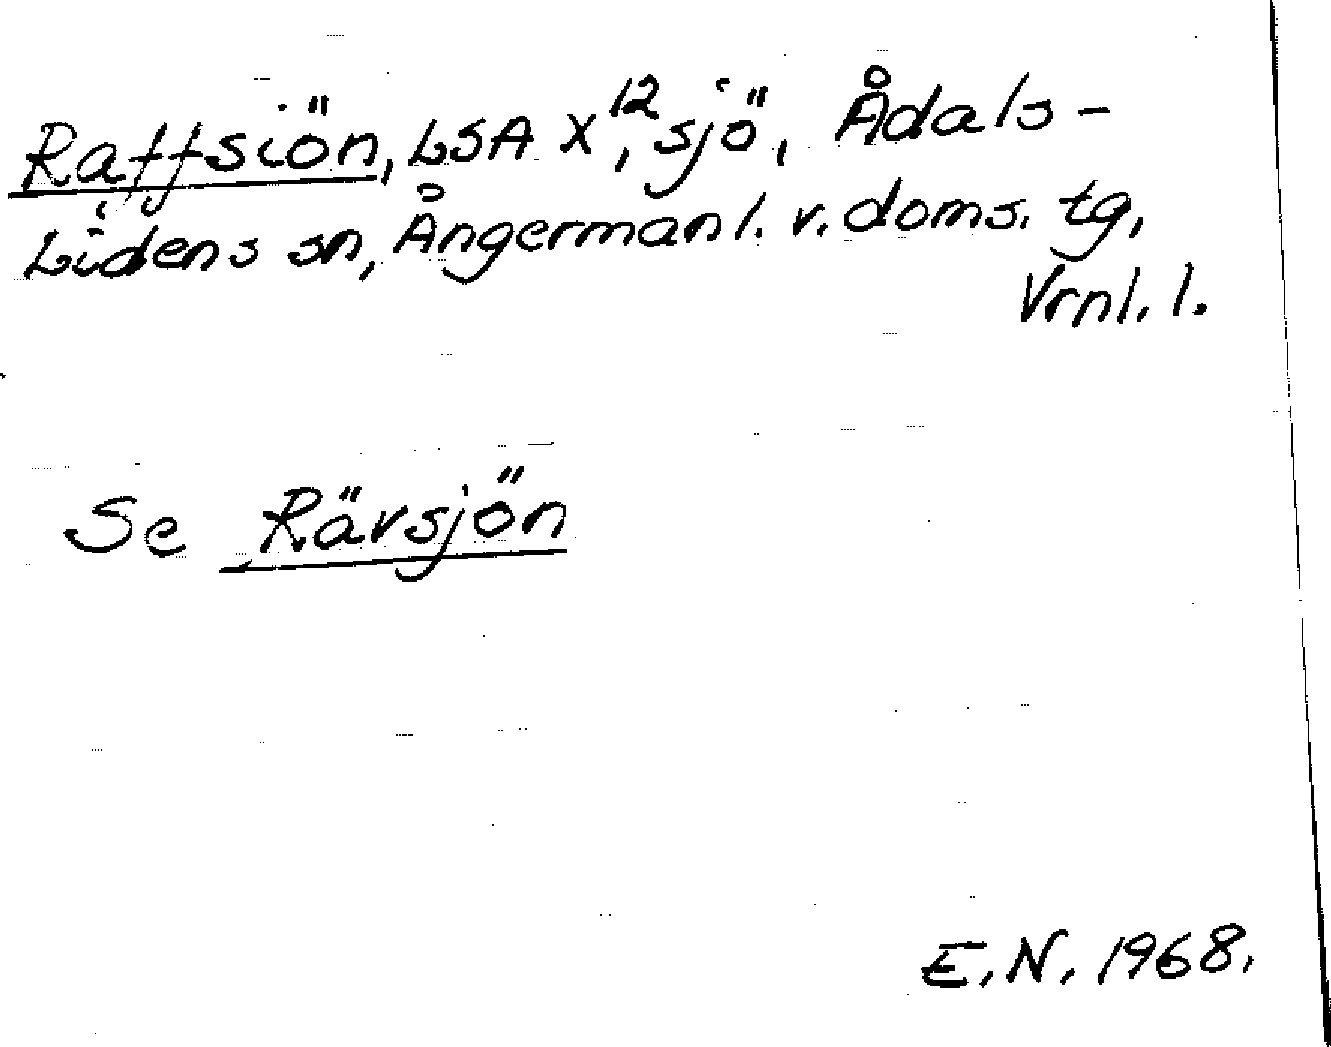 Raffsiön, LSA X¹², sjö, Ådals-
Lidens sn, Ångermanl. v. doms. tg,
Vrnl. l.
Se Rävsjön
E. N. 1968.